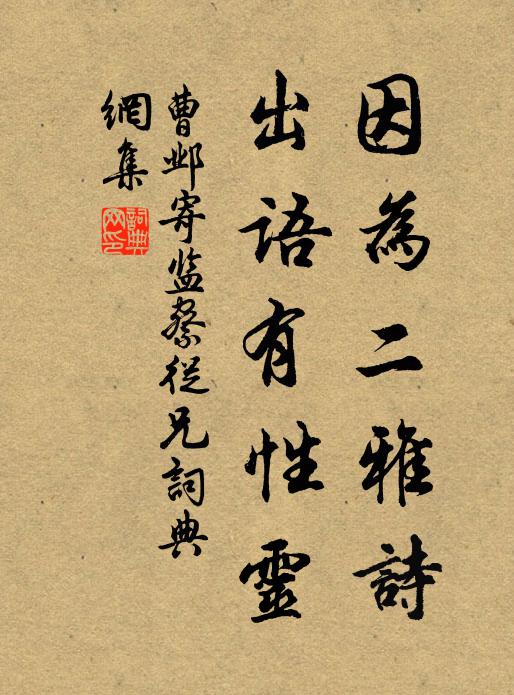 因為二雅詩
出語有性靈
曹邺寄监察從兄詞典
網集
詞典
网印